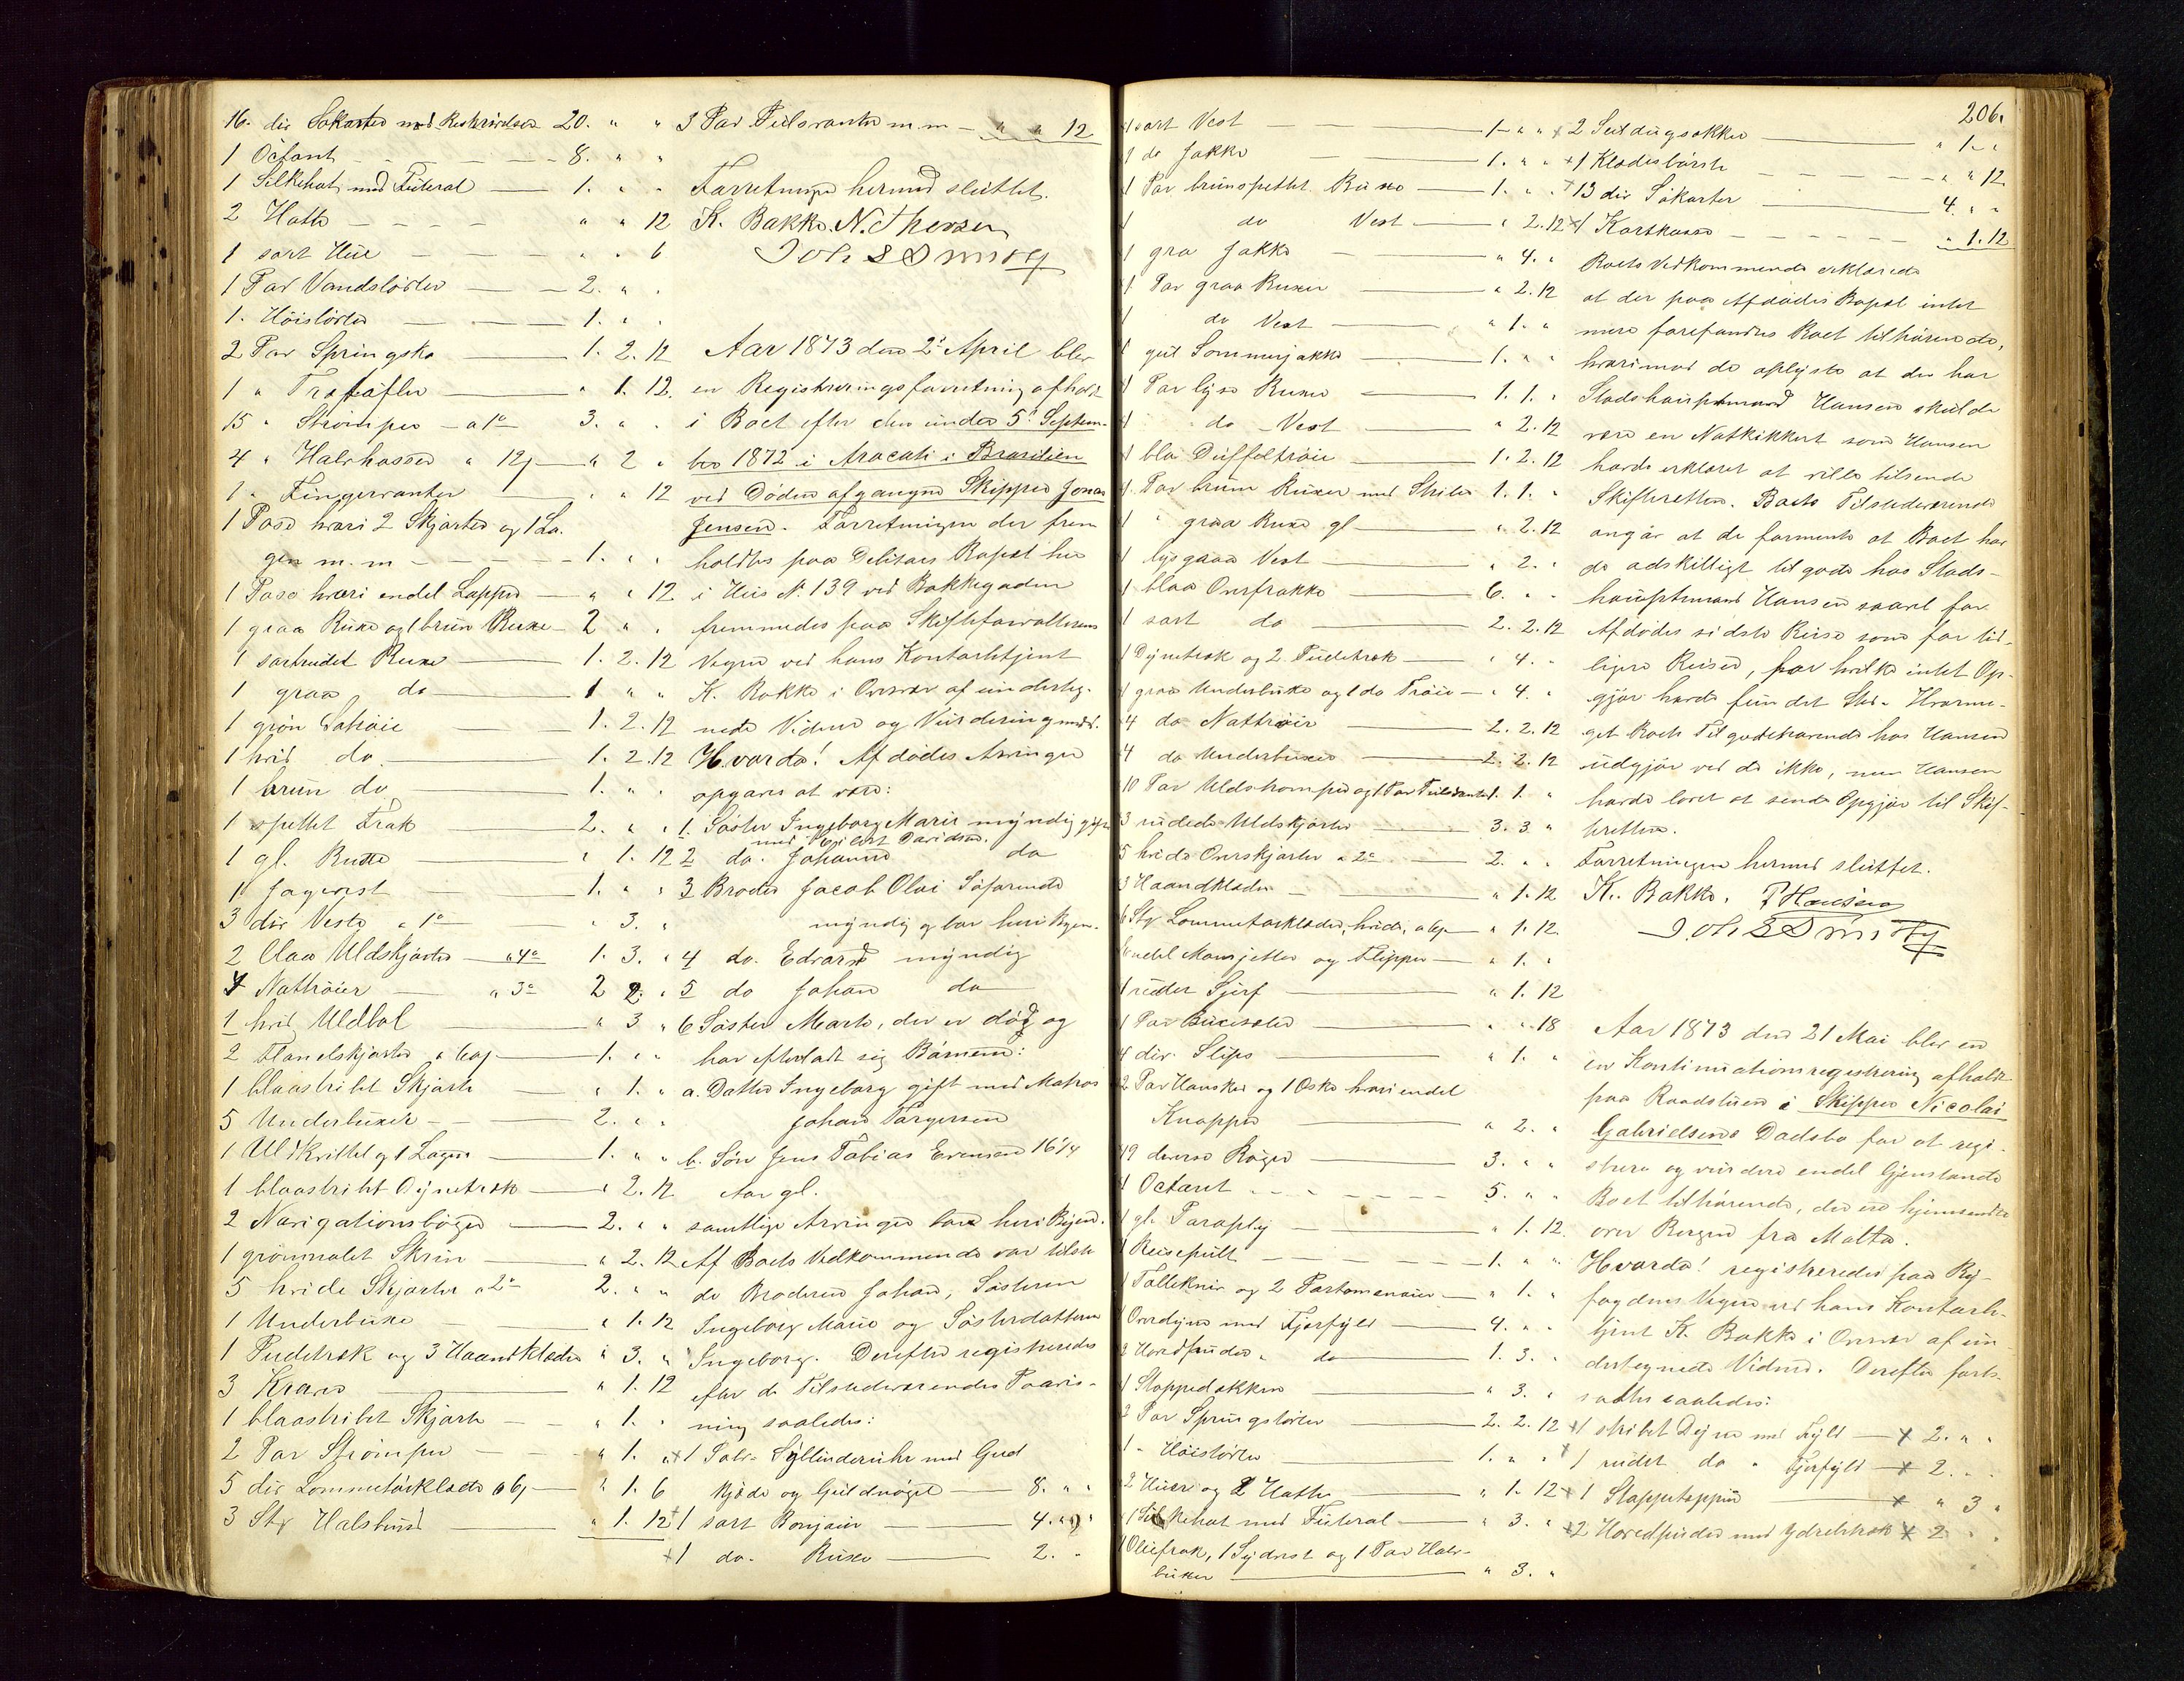 16. div Søkarter med Beskrivelser 20. " "
1 Octant — 8. " "
1 Silkehat med Futeral — 1. " "
2 Hatte — " " 12
1 sort Hue — " " 6
1 Par Vandstøvler — 2. " "
1. Høistøvler — 1. " "
2 Par Springsko — 1. 2. 12
1 " Træføfler — " 1. 12.
15 " Strømper — a 1 3. " "
4 " Halvhosser a 12 — " 2 "
1 " Fingervanter — " " 12
1 Pose hvori 2 Skjorter og 1 La-
gen m. m — 1. " "
1 Pose hvori endel Lapper — " " 12
1 graa Buxe og 1 brun Buxe — 2 " "
1 sortrudet Buxe — 1. 2. 12
1 graa do — 1 " "
1 grøn — 1. 2. 12
1 hvid do — 1. 2. 12
1 brun do — 1. " "
1 spettet Frak — 2. " "
1 gl. Buxe — " 1. 12
1 Jagvest — 1. " "
3 div Veste a 1 — " 3. "
2 blaa Uldskjorter — a 4 1. 3. "
4 Nattrøier — a 3 2 2. "
1 hvid Uldbol — " 3 "
2 Flanelskjorter — 1. " "
1 blaastribet Skjorte — " 1. "
5 Underbuxer — 2. " "
1 Uldkittel og 1 Lagen — 1. " "
1 blaastribt Dynetræk — " 2. 12
2 Navigationsbøger — 2. " "
1 grønmalet Skrin — " 2. 12
5 hvide Skjorter a 2 — 2. " "
1 Underbuxe — " 1. 12
1 Pudetræk og 3 Haandklæder " 3. "
3 Kraver — " 1. 12
1 blaastribet Skjorte — " 1. "
2 Par Strømper — " 1. "
5 div Lommetørklæder a 6 — " 1. 6
3 Stk Halstusd — " 1. 12
3 Par Tulvanter m m — " " 12
Forretningen hermed sluttet.
K. Bakke. N. Thersen
Joh S Smith
Aar 1873 den 2 April blev
en Registreringsforretning afholdt
i Boet efter den under 5 Septem-
ber 1872 i Aracati i Brasilien
ved Døden afgangne Skipper Jonas
Jensen. Forretningen der frem
holdtes paa Debitors Bopæl her
i Huis No 139 ved Bakkegaden
fremmedes paa Skifteforvalterens
Vegne ved hans Kontorbetjent
K. Bakke i Overvær af underteg-
nede Vidner og Vurderingsmænd.
Hvorda! Afdødes Arvinger
opgaves at være:
1. Søster Ingeborg Marie myndig gift
med Eilert Davidsen.
2 do. Johanne do
3 Broder Jacob Olai Søfarende
myndig og bor heri Byen.
4 do. Edvard myndig
5 do Johan do
6 Søster Marte, der er død og
har efterladt sig Børnene:
a. Datter Ingeborg gift med Matros
Johan Torgersen
b. Søn Jens Tobias Evensen 16 1/4
Aar gl.
samtlige Arvinger bor heri Byen.
Af Boets Vedkommende var tilste
de Broderen Johan, Søsteren
Ingeborg Marie og Søsterdatteren
Ingeborg. Derefter registreredes
efter de Tilstedeværendes Paavis-
ning saaledes:
x 1 Sølv Syllinderuhr med Guld
Kjæde og Guldnøgel — 8. " "
x 1 sort Bonjour — 4. " "
x 1 do. Buxe — 2. "
206.
1 sort Vest — 1 " "
1 do Jakke — 1. " "
1 Par brunspettet Buxe — 1. " "
1 do Vest — " 2. 12
1 graa Jakke — " 4. "
1 Par graa Buxer — " 2. 12
1 do Vest — " 1. "
1 gul Sommerjakke — 1. " "
1 Par lyse Buxer — 1. 1. "
1 do Vest — " 2. 12
1 blaa Duffeltrøie — 1. 2. 12
1 Par brune Buxer med Striber 1. 1. "
1 " graa Buxe gl — " 2. 12
1 lysgraa Vest — " 2. "
1 blaa Overfrakke — 6. " "
1 sort do — 2. 2. 12
1 Dynetræk og 2 Pudetræk — " 4. "
1 graa Underbuxe og 1 do Trøie — " 4. "
4 do Nattrøier — 2. 2. 12
4 do Underbuxer — 2. 2. 12
10 Par Uldstrømper og 1 Par Tulvanter 1. 1. "
3 rudede Uldskjorter — 3. 3 "
5 hvide Overskjorter a 2 — 2. " "
3 Haandklæder — " 1. 12
6 Stk Lommetørklæder, hvide, a 6 — " 1. 12.
endel Mansjetter og Flipper — " 1. "
1 rudet Sjerf — " 1. 12
1 Par Buxeseler — " " 18
4 div. Slips — " 1. "
2 Par Hansker og 1 Æske hvori endel
Knapper — " 2. "
19 diverse Bøger — 3. " "
1 Octant — 5. " "
1 gl. Paraply — " 1. 12.
1 Reisepult — 1. " "
1 Tollekniv og 2 Portemonaier — " 1. "
1 Overdyne med Fjerfyld — 4. " "
2 Hovedpuder " do — 1. 3. "
1 Stoppedækken — " 3. "
2 Par Springstøvler — 2. 2. 12
1 " Høistøvler — 1. " "
2 Huer og 2 Hatte — " 1. 12
1 Silkehat med Futeral — " 3. "
1 Oliefrak, 1 Sydvest og 1 Par Halv-
buxer — " 3. "
x 2 Seildugsækker — " 1. "
x 1 Klædesbørste — " " 12
13 div Søkarter — 4. " "
x 1 Kortkasse — " 1. 12
Boets Vedkommende erklærede
at der paa Afdødes Bopæl intet
mere forefandtes Boet tilhørende,
hvorimod de oplyste at der hos
Stadshauptmand Hansen skulde
være en Natkikkert som Hansen
havde erklæret at ville tilsende
Skifteretten. Boets Tilstedeværende
angav at de formente at Boet har
do adskilligt tilgode hos Stads-
hauptmand Hansen saavel for
Afdødes sidste Reise som for tid-
ligere Reiser, for hvilke intet Op-
gjør havde fundet Sted. Hvorme-
get Boets Tilgodehavende hos Hansen
udgjør ved de ikke, men Hansen
havde lovet at sende Opgjør til Skif-
teretten.
Forretningen hermed sluttet.
K. Bakke. P Hansen
Joh S Smith
Aar 1873 den 21 Mai blev en
en Kontinuationsregistrering afholdt
paa Raadstuen i Skipper Nicolai
Gabrielsens Dødsbo for at regi-
strere og vurdere endel Gjenstande
Boet tilhørende, der ere hjemsendte
over Bergen fra Malta.
Hvorda! registreredes paa By-
fogdens Vegne ved hans Kontorbe-
tjent K. Bakke i Overvær af un-
dertegnede Vidner. Derefter fort-
sattes saaledes:
x 1 stribet Dyne med Fyld — x 2. " "
x 1 rudet do " Fjerfyld — x 2. " "
x 1 Stoppeteppe — x " 3 "
x 2 Hovedpuder med Ydretræk x 2 " "